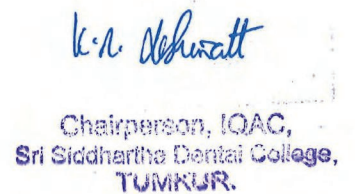 K.R.
Chairperson, IQAC,
Sri Siddhartha Dental College,
TUMKUR.